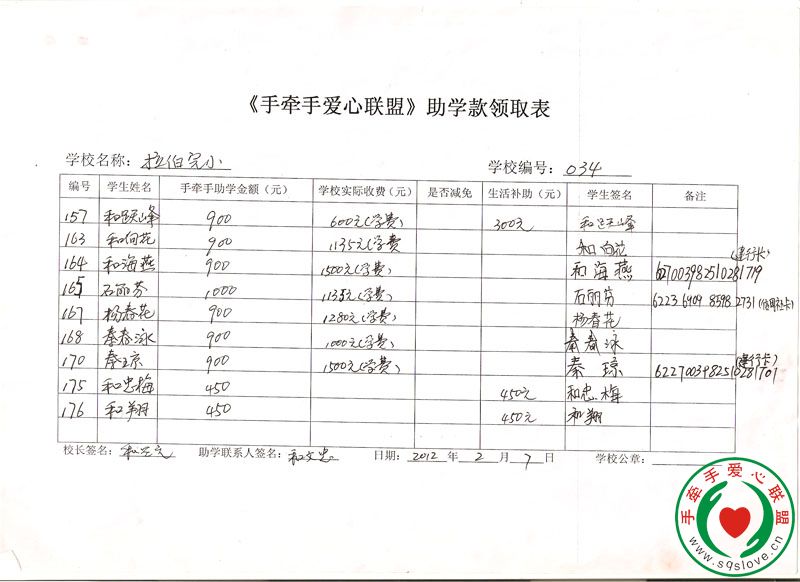 《手牵手爱心联盟》助学款领取表
学校名称：拉伯完小 学校编号：034
编号 学生姓名 手牵手助学金额（元） 学校实际收费（元） 是否减免 生活补助（元） 学生签名 备注
157 和跃峰 900 600元(学费) 300元 和跃峰
163 和向花 900 1135元(学费 和向花
164 和海燕 900 1500元(学费) 和海燕 (建行卡)
165 石丽芬 1000 1135元(学费) 石丽芬 6223 6909 8598 2731(信用社卡)
167 杨春花 900 1280元(学费) 杨春花
168 秦春泳 900 1000元(学费) 秦春泳
170 秦琼 900 1500元(学费) 秦琼 (建行卡)
175 和忠梅 450 450元 和忠梅
176 和翔 450 450元 和翔
校长签名： 助学联系人签名：和文忠 日期：2012 年 2 月 7 日 学校公章：
手牵手爱心联盟
www.sqslove.cn